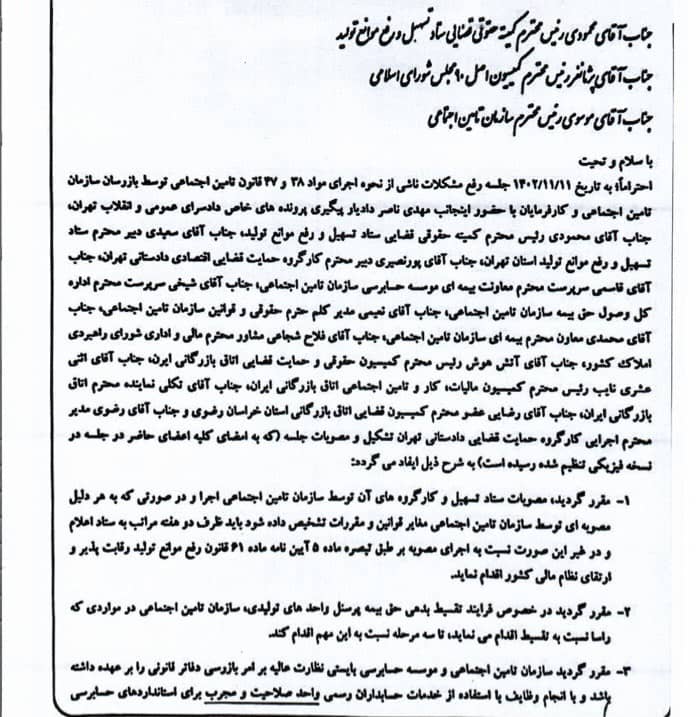 جناب آقای محمودی رئیس محترم کمیته حقوقی قضایی ستاد تسهیل و رفع موانع تولید
جناب آقای پژمانفر رئیس محترم کمیسیون اصل ۹۰ مجلس شورای اسلامی
جناب آقای موسوی رئیس محترم سازمان تامین اجتماعی
با سلام و تحیت
احتراماً؛ به تاریخ ۱۴۰۲/۱۱/۱۱ جلسه رفع مشکلات ناشی از نحوه اجرای مواد ۳۸ و ۴۷ قانون تامین اجتماعی توسط بازرسان سازمان
تامین اجتماعی و کارفرمایان با حضور اینجانب مهدی ناصر دادیار پیگیری پرونده های خاص دادسرای عمومی و انقلاب تهران،
جناب آقای محمودی رئیس محترم کمیته حقوقی قضایی ستاد تسهیل و رفع موانع تولید، جناب آقای سعیدی دبیر محترم ستاد
تسهیل و رفع موانع تولید استان تهران، جناب آقای پورنصیری دبیر محترم کارگروه حمایت قضایی اقتصادی دادستانی تهران، جناب
آقای قاسمی سرپرست محترم معاونت بیمه ای موسسه حسابرسی سازمان تامین اجتماعی، جناب آقای شیخی سرپرست محترم اداره
کل وصول حق بیمه سازمان تامین اجتماعی، جناب آقای نعیمی مدیر کلم حترم حقوقی و قوانین سازمان تامین اجتماعی، جناب
آقای محمدی معاون محترم بیمه ای سازمان تامین اجتماعی، جناب آقای فلاح شجاعی مشاور محترم مالی و اداری شورای راهبردی
املاک کشور، جناب آقای آتش هوش رئیس محترم کمیسیون حقوقی و حمایت قضایی اتاق بازرگانی ایرن، جناب آقای اثنی
عشری نایب رئیس محترم کمیسیون مالیات، کار و تامین اجتماعی اتاق بازرگانی ایران، جناب آقای تکلی نماینده محترم اتاق
بازرگانی ایران، جناب آقای رضایی عضو محترم کمیسیون قضایی اتاق بازرگانی استان خراسان رضوی و جناب آقای رضوی مدیر
محترم اجرایی کارگروه حمایت قضایی دادستانی تهران تشکیل و مصوبات جلسه (که به امضای کلیه اعضای حاضر در جلسه در
نسخه فیزیکی تنظیم شده رسیده است) به شرح ذیل ایفاد می گردد:
۱- مقرر گردید، مصوبات ستاد تسهیل و کارگروه های آن توسط سازمان تامین اجتماعی اجرا و در صورتی که به هر دلیل
مصوبه ای توسط سازمان تامین اجتماعی مغایر قوانین و مقررات تشخیص داده شود باید ظرف دو هفته مراتب به ستاد اعلام
و در غیر این صورت نسبت به اجرای مصوبه بر طبق تبصره ماده ۵ آیین نامه ماده ۶۱ قانون رفع موانع تولید رقابت پذیر و
ارتقای نظام مالی کشور اقدام نماید.
۲- مقرر گردید در خصوص فرایند تقسیط بدهی حق بیمه پرسنل واحد های تولیدی، سازمان تامین اجتماعی در مواردی که
راسا نسبت به تقسیط اقدام می نماید، تا سه مرحله نسبت به این مهم اقدام کند.
۳- مقرر گردید سازمان تامین اجتماعی و موسسه حسابرسی بایستی نظارت عالیه بر امر بازرسی دفاتر قانونی را بر عهده داشته
باشد و با انجام وظایف با استفاده از خدمات حسابداران رسمی واحد صلاحیت و مجرب برای استانداردهای حسابرسی